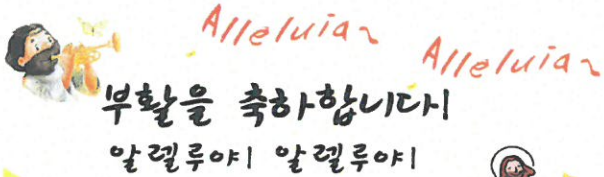 Alleluia~
Alleluia~
부활을 축하합니다!
알렐루야! 알렐루야!